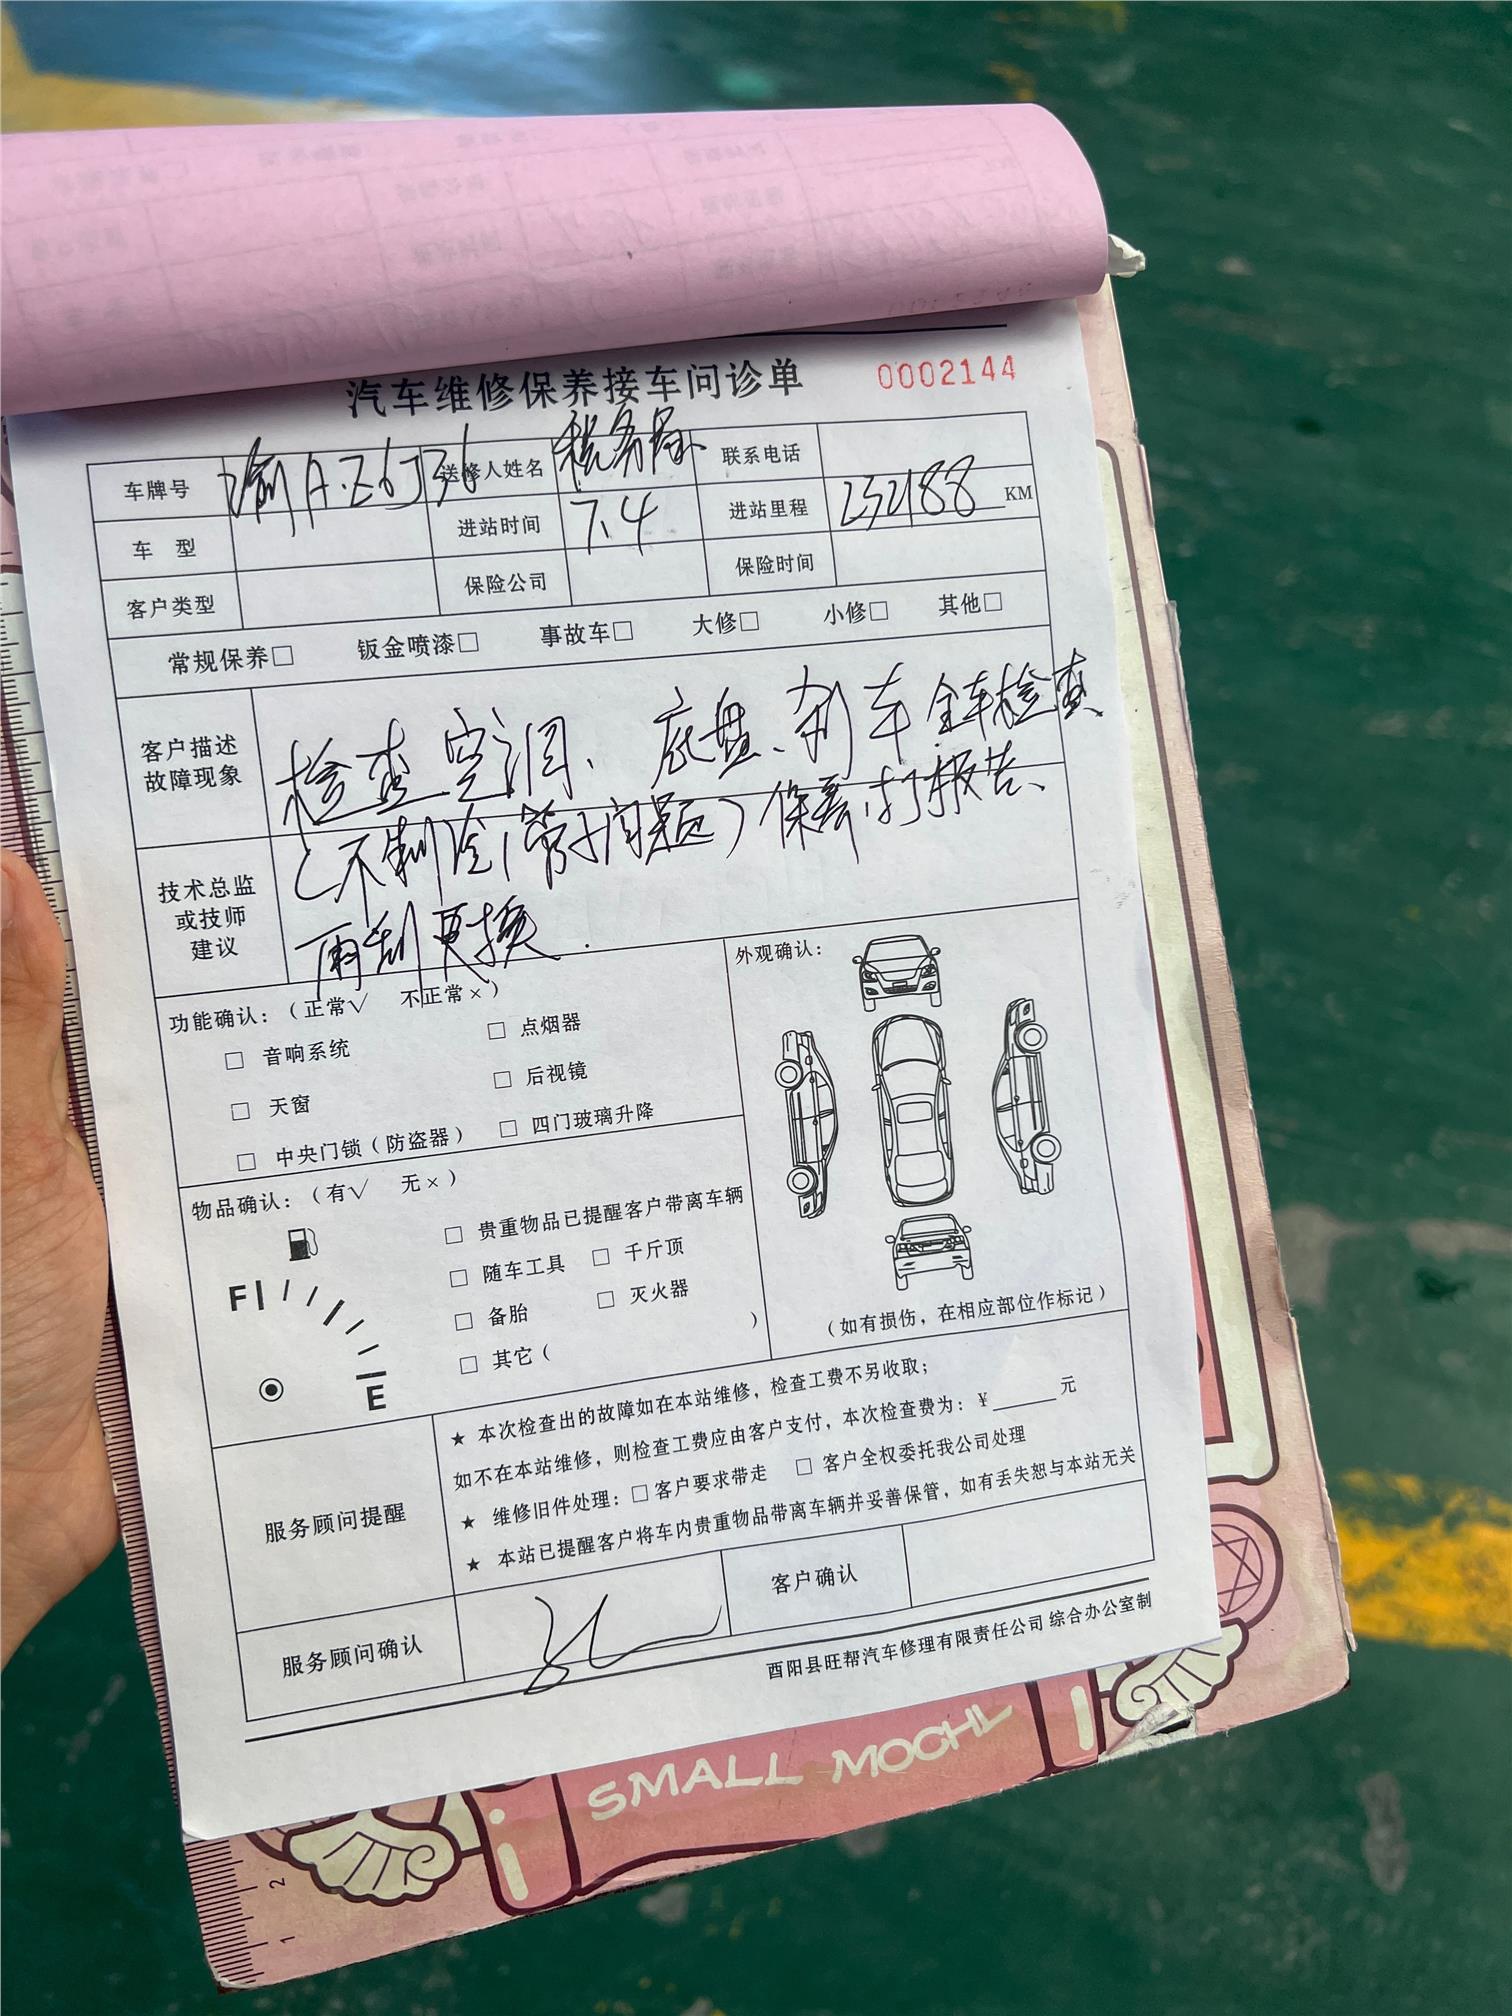 汽车维修保养接车问诊单 0002144
车牌号 渝A·Z6J36 送修人姓名 税务局 联系电话
车 型 进站时间 7.4 进站里程 232188 KM
客户类型 保险公司 保险时间
常规保养□ 钣金喷漆□ 事故车□ 大修□ 小修□ 其他□
客户描述
故障现象
检查空调、底盘、刹车 全车检查
(不制冷(管子问题) 保养、打报告、
技术总监
或技师
建议
雨刮更换.
功能确认:(正常√ 不正常×)
□ 音响系统 □ 点烟器
□ 天窗 □ 后视镜
□ 中央门锁(防盗器) □ 四门玻璃升降
外观确认:
(如有损伤,在相应部位作标记)
物品确认:(有√ 无×)
□ 贵重物品已提醒客户带离车辆
□ 随车工具 □ 千斤顶
□ 备胎 □ 灭火器
□ 其它( )
F
E
服务顾问提醒
★ 本次检查出的故障如在本站维修,检查工费不另收取;
如不在本站维修,则检查工费应由客户支付,本次检查费为:¥______元
★ 维修旧件处理:□ 客户要求带走 □ 客户全权委托我公司处理
★ 本站已提醒客户将车内贵重物品带离车辆并妥善保管,如有丢失恕与本站无关
服务顾问确认 客户确认
酉阳县旺帮汽车修理有限责任公司 综合办公室制
SMALL MOCHL
2
1